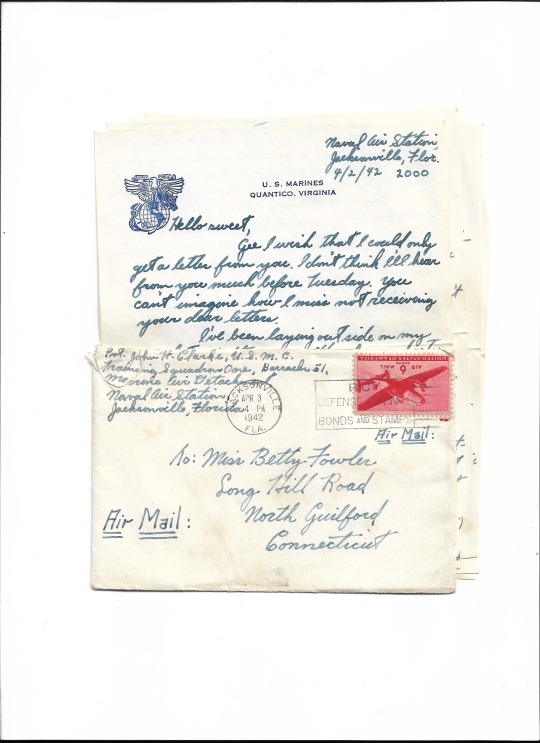 Naval Air Station,
Jacksonville, Flor.
4/2/42 2000
U. S. MARINES
QUANTICO, VIRGINIA
Hello sweet,
Gee I wish that I could only
get a letter from you. I don't think I'll hear
from you much before Tuesday. You
can't imagine how I miss not receiving
your dear letters.
I've been laying out side on my
Pvt. John H. Clarke, U.S.M.C.
Training Squadron One, Barracks 51,
Marine Air Detachment
Naval Air Station,
Jacksonville, Florida
JACKSONVILLE
APR 3
4 PM
1942
FLA.
BUY
DEFENSE
BONDS AND STAMPS
UNITED STATES OF AMERICA
AIR MAIL
6 CENTS
Air Mail:
To: Miss Betty Fowler
Long Hill Road
North Guilford
Connecticut
Air Mail: